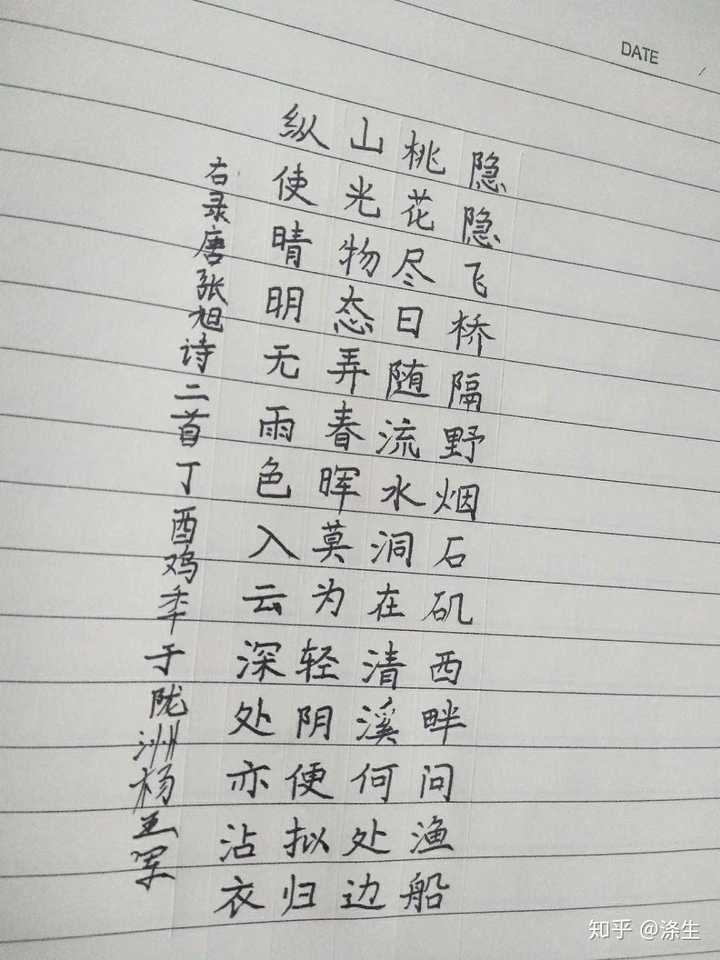 DATE /
隐隐飞桥隔野烟石矶西畔问渔船
桃花尽日随流水洞在清溪何处边
山光物态弄春晖莫为轻阴便拟归
纵使晴明无雨色入云深处亦沾衣
右录唐张旭诗二首丁酉鸡秊于陇洲杨军
知乎 @涤生